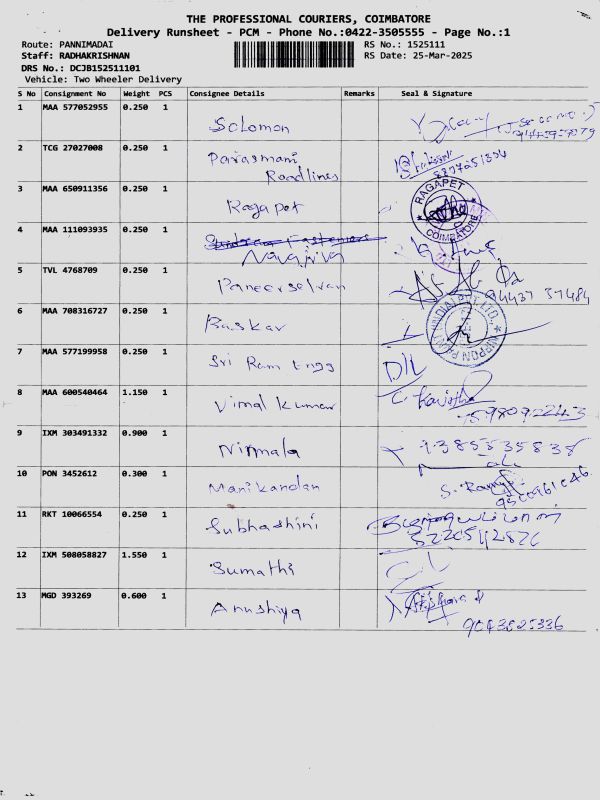 THE PROFESSIONAL COURIERS, COIMBATORE
Delivery Runsheet - PCM - Phone No.:0422-3505555 - Page No.:1
Route: PANNIMADAI
RS No.: 1525111
Staff: RADHAKRISHNAN
RS Date: 25-Mar-2025
DRS No.: DCJB152511101
Vehicle: Two Wheeler Delivery
S No Consignment No Weight PCS Consignee Details Remarks Seal & Signature
1 MAA 577052955 0.250 1
Solomon
2 TCG 27027008 0.250 1
Parasmani
Roadlines
8837251334
3 MAA 650911356 0.250 1
Ragapet
RAGAPET
COIMBATORE
4 MAA 111093935 0.250 1
Navajiva
5 TVL 4768709 0.250 1
Paneerselvan
94437 37484
6 MAA 708316727 0.250 1
Baskar
NIPPON PAINT (INDIA) PVT. LTD.
7 MAA 577199958 0.250 1
Sri Ram Engg
8 MAA 600540464 1.150 1
Vimal Kumar
9 IXM 303491332 0.900 1
Nirmala
9385535838
10 PON 3452612 0.300 1
Manikandan
11 RKT 10066554 0.250 1
Subhashini
12 IXM 508058827 1.550 1
Sumathi
13 MGD 393269 0.600 1
Anushiya
9043825336